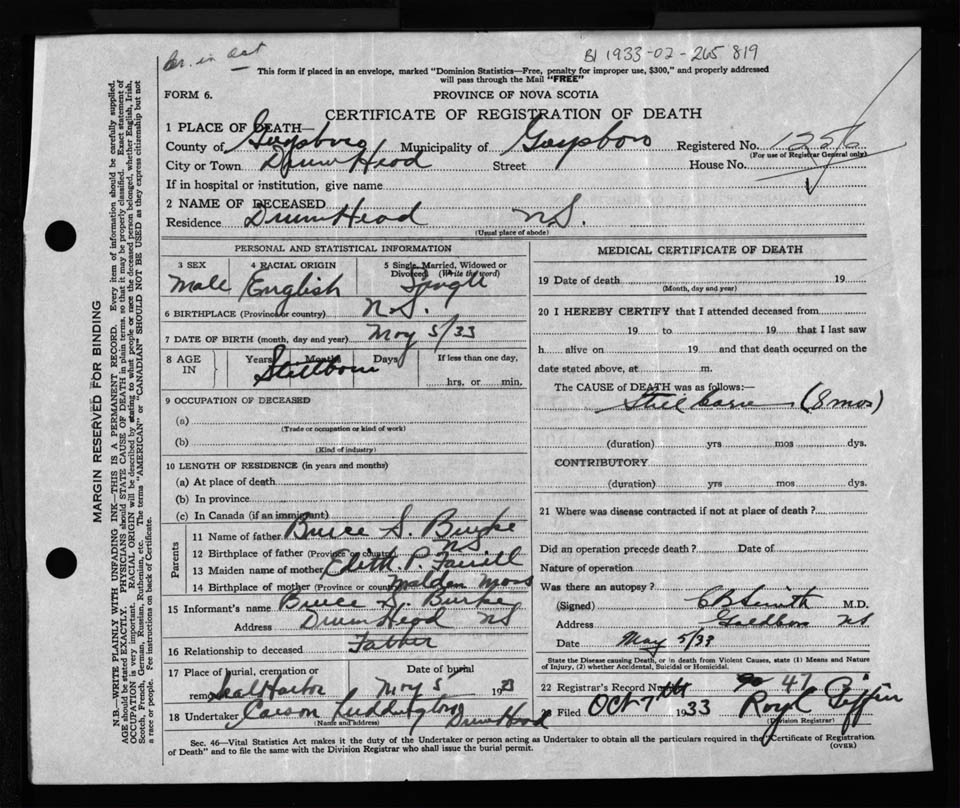 Br. in Oct
B1 1933-02-265 819
This form if placed in an envelope, marked "Dominion Statistics—Free, penalty for improper use, $300," and properly addressed
will pass through the Mail "FREE"
FORM 6.
PROVINCE OF NOVA SCOTIA
CERTIFICATE OF REGISTRATION OF DEATH
1 PLACE OF DEATH—
County of Guysboro Municipality of Guysboro Registered No.
(For use of Registrar General only)
City or Town Drum Head Street House No.
If in hospital or institution, give name
2 NAME OF DECEASED
Residence Drum Head N.S.
(Usual place of abode)
PERSONAL AND STATISTICAL INFORMATION
3 SEX 4 RACIAL ORIGIN 5 Single, Married, Widowed or
Divorced (Write the word)
Male English Single
6 BIRTHPLACE (Province or country) N.S.
7 DATE OF BIRTH (month, day and year) May 5/33
8 AGE IN Years Months Days If less than one day,
Stillborn hrs. or min.
9 OCCUPATION OF DECEASED
(a)
(Trade or occupation or kind of work)
(b)
(Kind of industry)
10 LENGTH OF RESIDENCE (in years and months)
(a) At place of death
(b) In province
(c) In Canada (if an immigrant)
Parents
11 Name of father Bruce S. Burke
12 Birthplace of father (Province or country) NS
13 Maiden name of mother Edith P.
14 Birthplace of mother (Province or country) Malden Mass
15 Informant's name Bruce S. Burke
Address Drum Head NS
16 Relationship to deceased Father
17 Place of burial, cremation or Date of burial
removal Harbor May 5 1933
18 Undertaker Carson Luddington Drum Head
(Name and address)
MEDICAL CERTIFICATE OF DEATH
19 Date of death 19
(Month, day and year)
20 I HEREBY CERTIFY that I attended deceased from
19 to 19 that I last saw
h alive on 19 and that death occurred on the
date stated above, at m.
The CAUSE of DEATH was as follows:—
Still born (8 mos)
(duration) yrs mos dys.
CONTRIBUTORY
(duration) yrs mos dys.
21 Where was disease contracted if not at place of death?
Did an operation precede death? Date of
Nature of operation
Was there an autopsy?
(Signed) CB Smith M.D.
Address Goldboro NS
Date May 5/33
State the Disease causing Death, or in death from Violent Causes, state (1) Means and Nature
of Injury, (2) whether Accidental, Suicidal or Homicidal.
22 Registrar's Record No. 47
23 Filed Oct 7th 1933 Roy C Giffin
(Division Registrar)
Sec. 46—Vital Statistics Act makes it the duty of the Undertaker or person acting as Undertaker to obtain all the particulars required in the "Certificate of Registration
of Death" and to file the same with the Division Registrar who shall issue the burial permit.
(OVER)
MARGIN RESERVED FOR BINDING
N.B.—WRITE PLAINLY WITH UNFADING INK—THIS IS A PERMANENT RECORD. Every item of information should be carefully supplied.
AGE should be stated EXACTLY. PHYSICIANS should STATE CAUSE OF DEATH in plain terms, so that it may be properly classified. Exact statement of
OCCUPATION is very important. RACIAL ORIGIN will be described by stating to what people or race the deceased person belonged, whether English, Irish,
Scotch, French, German, Russian, Ruthenian, etc. The terms "AMERICAN" or "CANADIAN" SHOULD NOT BE USED as they express citizenship but not
a race or people. Fee instructions on back of Certificate.